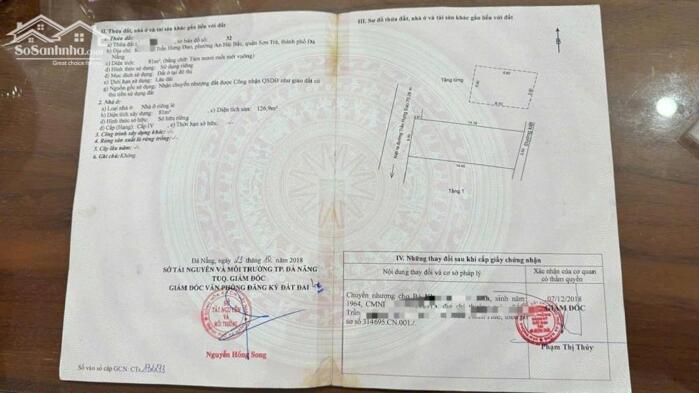 SoSanhnha.com
Great choice, great
II. Thửa đất, nhà ở và tài sản khác gắn liền với đất
1. Thửa đất:
a) Thửa đất: tờ bản đồ số: 32
b) Địa chỉ: K Trần Hưng Đạo, phường An Hải Bắc, quận Sơn Trà, thành phố Đà Nẵng
c) Diện tích: 81m² (bằng chữ: Tám mươi mốt mét vuông)
d) Hình thức sử dụng: Sử dụng riêng
đ) Mục đích sử dụng: Đất ở tại đô thị
e) Thời hạn sử dụng: Lâu dài
g) Nguồn gốc sử dụng: Nhận chuyển nhượng đất được Công nhận QSDĐ như giao đất có
thu tiền sử dụng đất
2. Nhà ở:
a) Loại nhà ở: Nhà ở riêng lẻ
b) Diện tích xây dựng: 81m² c) Diện tích sàn: 126,9m²
d) Hình thức sở hữu: Sở hữu riêng
đ) Cấp (Hạng): Cấp IV e) Thời hạn sở hữu: -/-
3. Công trình xây dựng khác: -/-
4. Rừng sản xuất là rừng trồng: -/-
5. Cây lâu năm: -/-
6. Ghi chú: Không.
Đà Nẵng, ngày 23 tháng năm 2018
SỞ TÀI NGUYÊN VÀ MÔI TRƯỜNG TP. ĐÀ NẴNG
TUQ. GIÁM ĐỐC
GIÁM ĐỐC VĂN PHÒNG ĐĂNG KÝ ĐẤT ĐAI
SỞ
TÀI NGUYÊN
VÀ
MÔI TRƯỜNG
Nguyễn Hồng Song
Số vào sổ cấp GCN: CTs
III. Sơ đồ thửa đất, nhà ở và tài sản khác gắn liền với đất
B
Tầng lửng
Tầng 1
Đường kiệt
IV. Những thay đổi sau khi cấp giấy chứng nhận
Nội dung thay đổi và cơ sở pháp lý
Xác nhận của cơ quan
có thẩm quyền
Chuyển nhượng cho Bà sinh năm
1964, CMND địa chỉ
Trần
sơ số 314695.CN.001./.
07/12/2018
GIÁM ĐỐC
Phạm Thị Thủy